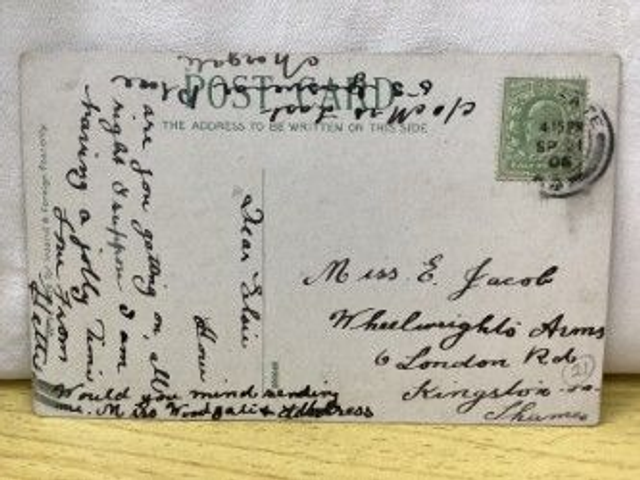 POST CARD
THE ADDRESS TO BE WRITTEN ON THIS SIDE
4.15 PM
SP 21
06
Miss E. Jacob
Wheelwrights Arms
6 London Rd
Kingston on
Thames
(21)
Dear Elsie
How
are you getting on, all
right I suppose I am
having a jolly Time
Love from
Hettie
Would you mind sending
me. Miss address
c/o Mrs
Place
Margate